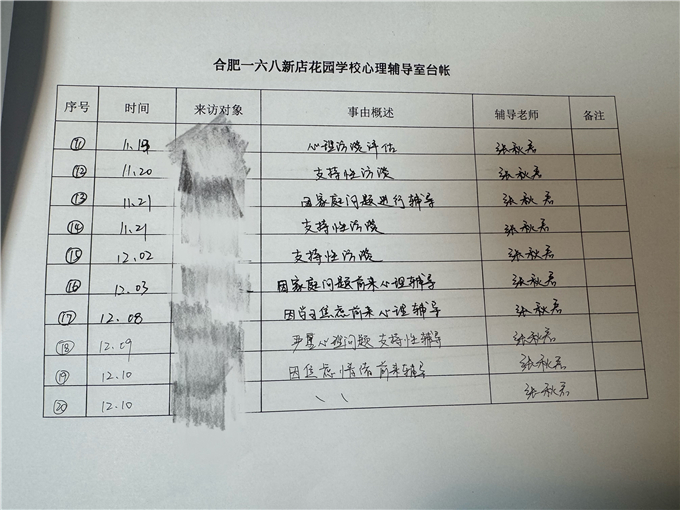 合肥一六八新店花园学校心理辅导室台帐
序号 时间 来访对象 事由概述 辅导老师 备注
⑪ 11.19 心理访谈评估 张秋君
⑫ 11.20 支持性访谈 张秋君
⑬ 11.21 因家庭问题进行辅导 张秋君
⑭ 11.21 支持性访谈 张秋君
⑮ 12.02 支持性访谈 张秋君
⑯ 12.03 因家庭问题前来心理辅导 张秋君
⑰ 12.08 因自主焦虑前来心理辅导 张秋君
⑱ 12.09 严重心理问题 支持性辅导 张秋君
⑲ 12.10 因焦虑情绪前来辅导 张秋君
⑳ 12.10 、、 张秋君